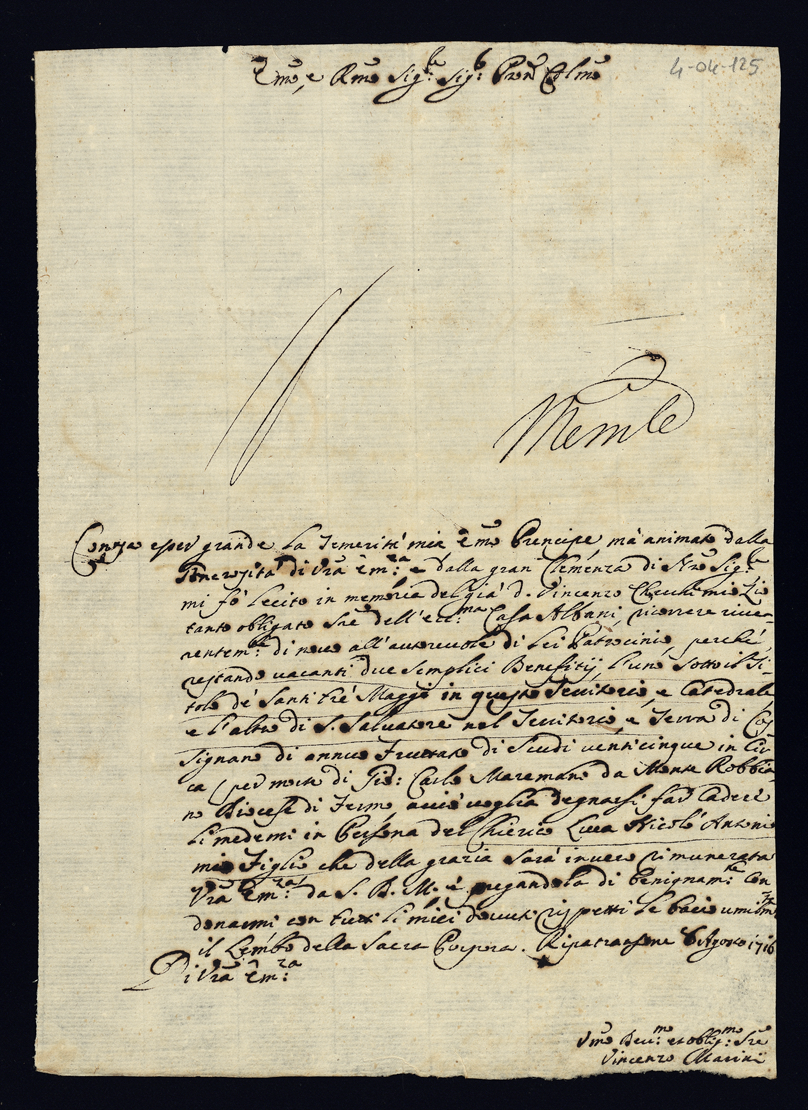 4-04-125
Emo, e Rmo Sig:r Sig:r Pron Colmo
Memle
esser grande la Temerità mia Emo Prencipe mà animato dalla
Generosità di Vra Em:za e dalla gran Clemenza di Nro Sig:re
mi fò lecito in memoria del già D. Vincenzo Checchi mio Zio
tanto obligato Sre dell'ecc:ma Casa Albani, ricorrere rive-
rentem:te di novo all'autorevole di Lei Patrocinio, perché
restando vacanti due Semplici Benefitij, l'uno sotto il Ti-
tolo de Santi Trè Maggi in questo Territorio, e Catedrale
e l'altro di S. Salvatore nel Territorio, e Terra di Cos
signano di annuo Fruttato di Scudi venticinque in Cir
ca per morte di Gio: Carlo Maremano da Monte Robbia-
no Diocese di Fermo, acciò voglia degnarsi far cadere
li medemi in Persona del Chierico Luca Nicolò Antonio
mio Figlio che della grazia sarà invero rimunerata
Vra Em:za da S. D. M. e pregandola di benignam:te con
donarmi con tutti li miei dovuti rispetti le bacio umilm:te
il Lembo della Sacra Porpora. Ripatransone 6 Agosto 1716
Di Vra Em:za
Vmo Dev:mo et oblig:mo Sre
Vincenzo Marini